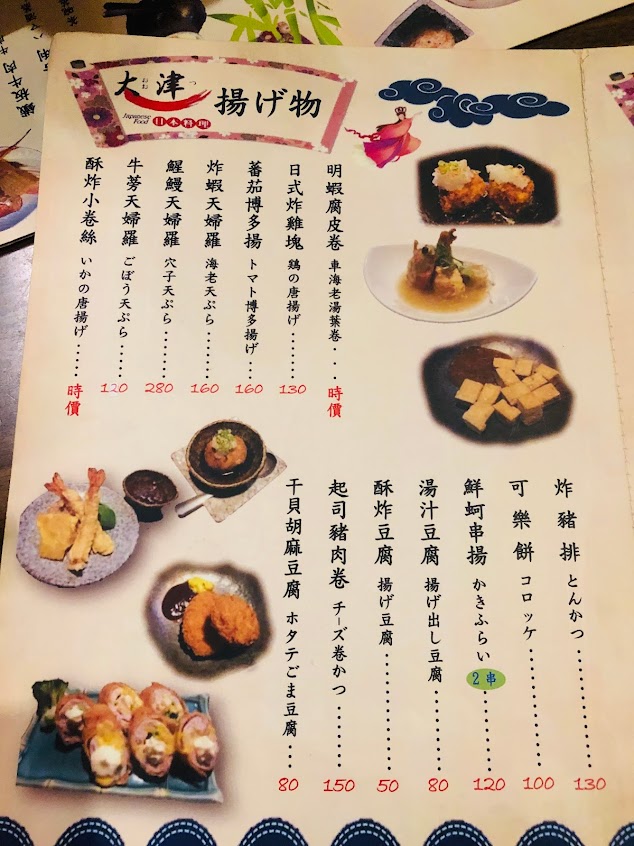 大津
おお つ
Japanese Food
日本料理
揚げ物
明蝦腐皮卷 車海老湯葉卷‥時價
日式炸雞塊 鶏の唐揚げ……130
蕃茄博多揚 トマト博多揚げ…160
炸蝦天婦羅 海老天ぷら………160
鰻天婦羅 穴子天ぷら………280
牛蒡天婦羅 ごぼう天ぷら……120
酥炸小卷絲 いかの唐揚げ……時價
炸豬排 とんかつ……………130
可樂餅 コロッケ……………100
鮮蚵串揚 かきふらい 2串………120
湯汁豆腐 揚げ出し豆腐………80
酥炸豆腐 揚げ豆腐……………50
起司豬肉卷 チーズ巻かつ………150
干貝胡麻豆腐 ホタテごま豆腐…80
鐵板牛肉